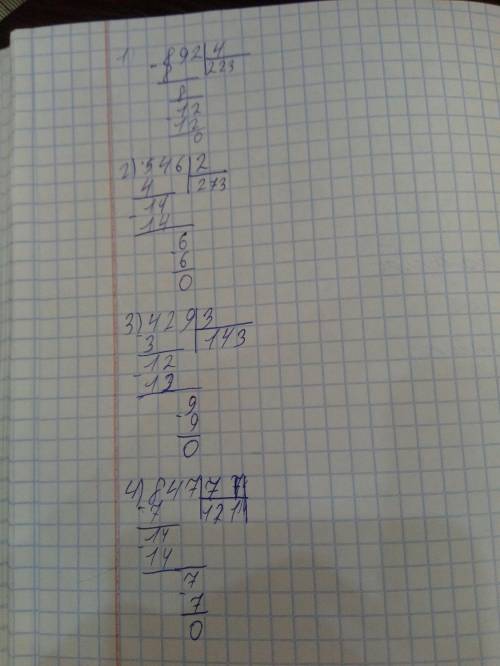 1 - 892 | 4
8 223
8
12
- 12
0
2) 546 | 2
4 273
- 14
14
6
- 6
0
3) 429 | 3
3 143
- 12
12
9
- 9
0
4) 847 | 7
- 7 121
- 14
14
7
- 7
0